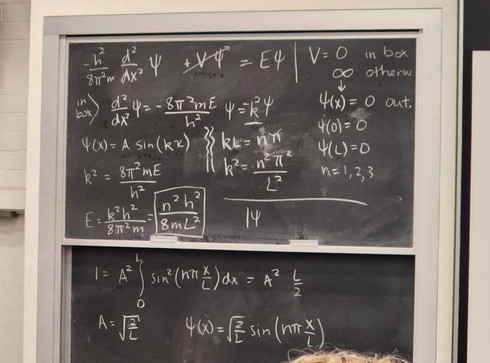 -h²/8π²m d²/dx² ψ + Vψ = Eψ | V = 0 in box
∞ otherw
in box > d²/dx² ψ = -8π²mE/h² ψ = -k²ψ
ψ(x) = 0 out.
ψ(x) = A sin(kx)
kL = nπ
ψ(0) = 0
k² = 8π²mE/h²
k² = n²π²/L²
ψ(L) = 0
n = 1, 2, 3
E = k²h²/8π²m = n²h²/8mL²
|ψ
1 = A² ∫₀ᴸ sin²(nπ x/L) dx = A² L/2
A = √(2/L)
ψ(x) = √(2/L) sin(nπ x/L)